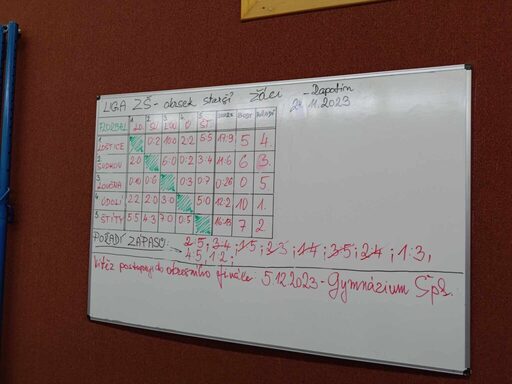 LIGA ZŠ - okrsek starší žáci - Zapotín
24.11.2023
FLORBAL 1 LO 2 SU 3 LOU 4 Ú 5 ŠT SKÓRE BODY POŘADÍ
1 LOŠTICE 0:2 10:0 2:2 5:5 17:9 5 4.
2 SUDKOV 2:0 6:0 0:2 3:4 11:6 6 3.
3 LOUČNÁ 0:10 0:6 0:3 0:7 0:26 0 5
4 ÚDOLÍ 2:2 2:0 3:0 5:0 12:2 10 1.
5 ŠTÍTY 5:5 4:3 7:0 0:5 16:13 7 2.
POŘADÍ ZÁPASŮ: 2:5; 3-4; 1:5; 2:3; 1-4; 3:5; 2:4; 1:3,
4:5; 1:2;
Vítěz postupuje do okresního finále: 5.12.2023 - Gymnázium Špk.